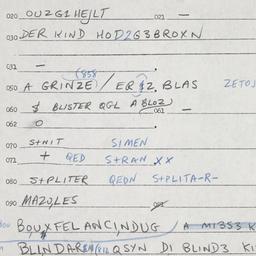 020 OUZG1 HEJLT 021 —
030 DER KIND HOD2G3BROXN
031 — .
(858
050 A GRINZE / ER Z. BLAS ZETO
060 $ BLISTER QGL A BLOZ
061 —
062 O .
070 S+NIT SIMEN
071 + QED S+RAN XX
080 S+PLITER QEDN S+PLITA-R-
090 MAZO,LES 091
BOUXFELANCINDUG / A MIBS3 K
BLINDAR QSYN DI BLIND3 KI